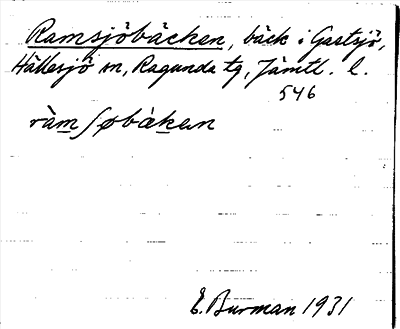 Ramsjöbäcken, bäck i Gastsjö,
Hällesjö sn, Ragunda tg, Jämtl. l.
546
ràmʃøbäken
E. Burman 1931